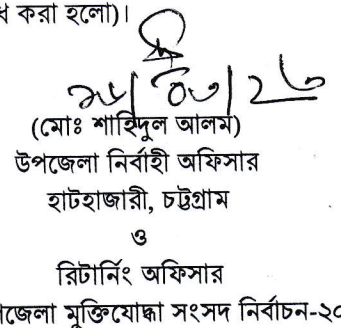 করা হলো)।
(মোঃ শাহিদুল আলম)
উপজেলা নির্বাহী অফিসার
হাটহাজারী, চট্টগ্রাম
ও
রিটার্নিং অফিসার
মুক্তিযোদ্ধা সংসদ নির্বাচন-২০